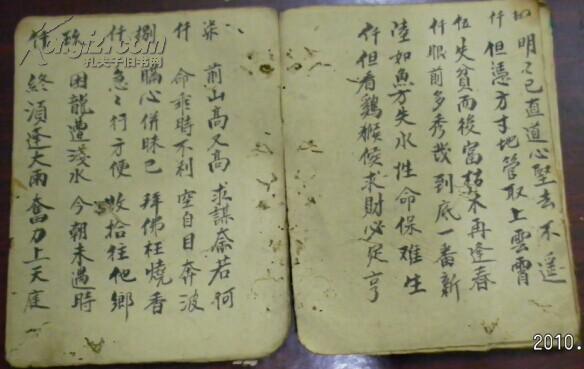 四 明明已直道 心堅去不遥
仟 但憑方寸地 管取上雲霄
伍 失貧而後富 枯木再逢春
仟 眼前多秀哉 到底一番新
陸 如魚方失水 性命保难生
仟 但看鷄猴候 求財必定亨
柒 前山高又高 求謀奈若何
仟 命乖時不利 空自目奔波
捌 瞞心併昧己 拜佛枉燒香
仟 急急行方便 收拾往他鄉
玖 困龍遭淺水 今朝未遇時
仟 終須逢大雨 奮力上天庭
Kongfz.com
孔夫子旧书网
2010.